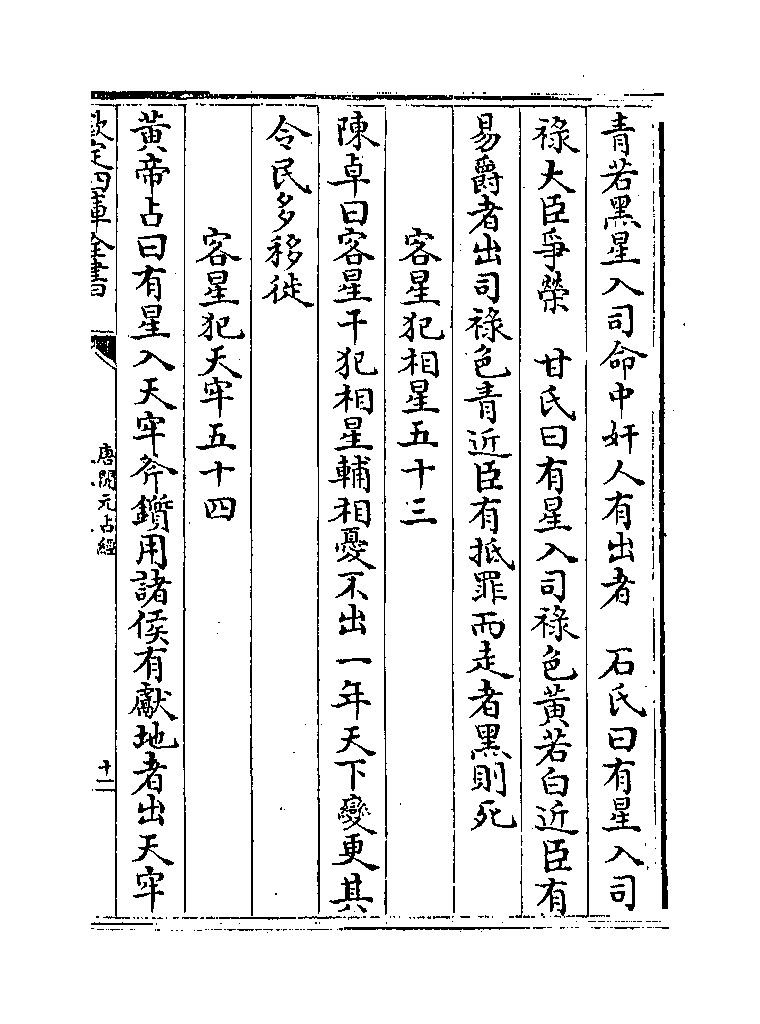 青若黑星入司命中奸人有出者　石氏曰有星入司
祿大臣爭榮　甘氏曰有星入司祿色黃若白近臣有
易爵者出司祿色青近臣有抵罪而走者黑則死
客星犯相星五十三
陳卓曰客星干犯相星輔相憂不出一年天下變更其
令民多移徙
客星犯天牢五十四
黃帝占曰有星入天牢斧鑕用諸侯有獻地者出天牢
欽定四庫全書
唐開元占經
十一